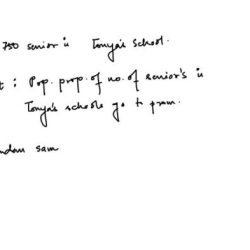 750 senior in Tonya's School.
t : Pop. prop. of no. of senior's in
Tonya's schools go to prom.
ndom sam